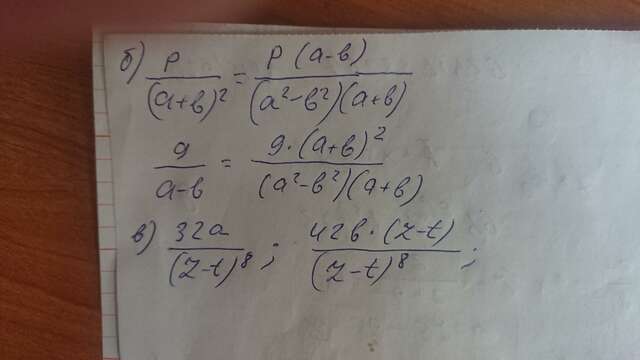 б) p/(a+b)² = p(a-b)/(a²-b²)(a+b)
g/a-b = g·(a+b)²/(a²-b²)(a+b)
в) 32a/(z-t)⁸; 42b·(z-t)/(z-t)⁸;